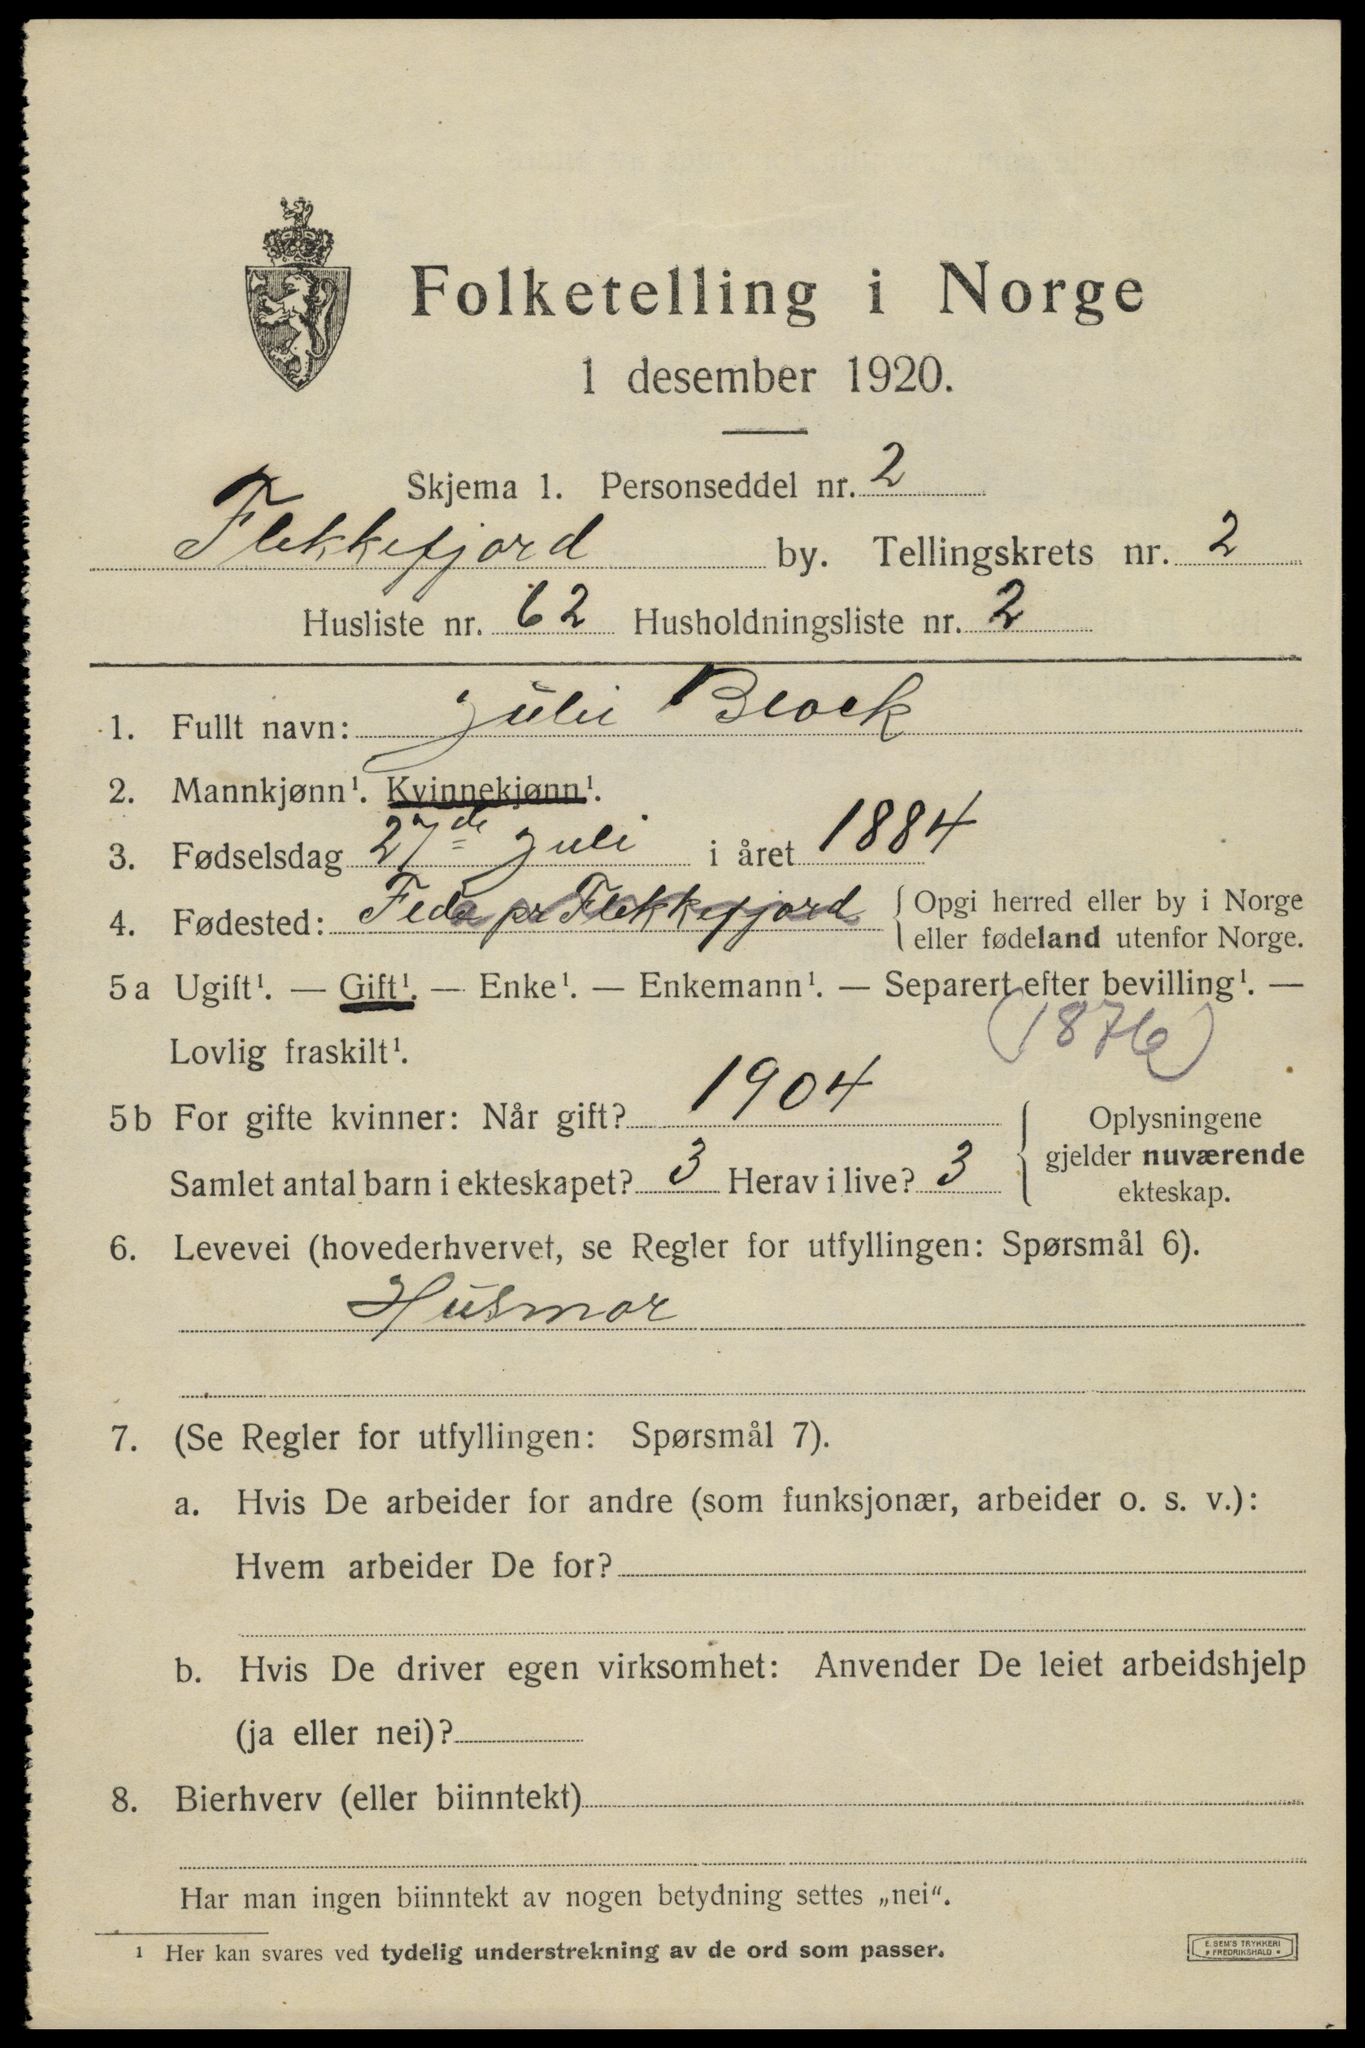 Folketelling i Norge
1 desember 1920.
Skjema 1. Personseddel nr. 2
Flekkefjord by. Tellingskrets nr. 2
Husliste nr. 62 Husholdningsliste nr. 2
1. Fullt navn: Julie Block
2. Mannkjønn¹. Kvinnekjønn¹.
3. Fødselsdag 27de Juli i året 1884
4. Fødested: Feda pr Flekkefjord { Opgi herred eller by i Norge
eller fødeland utenfor Norge.
5a Ugift¹. — Gift¹. — Enke¹. — Enkemann¹. — Separert efter bevilling¹. —
Lovlig fraskilt¹. (1876)
5b For gifte kvinner: Når gift? 1904
Samlet antal barn i ekteskapet? 3 Herav i live? 3
{ Oplysningene
gjelder nuværende
ekteskap.
6. Levevei (hovederhvervet, se Regler for utfyllingen: Spørsmål 6).
Husmor
7. (Se Regler for utfyllingen: Spørsmål 7).
a. Hvis De arbeider for andre (som funksjonær, arbeider o. s. v.):
Hvem arbeider De for?
b. Hvis De driver egen virksomhet: Anvender De leiet arbeidshjelp
(ja eller nei)?
8. Bierhverv (eller biinntekt)
Har man ingen biinntekt av nogen betydning settes „nei“.
¹ Her kan svares ved tydelig understrekning av de ord som passer.
E. SEM'S TRYKKERI
FREDRIKSHALD